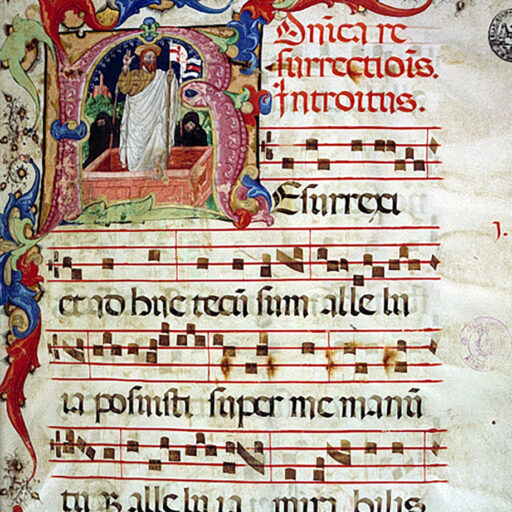 Dn̄ica re
surrectiōis.
Introitus.
Esurrexi
et ad huc tecū sum alle lu
ia posuisti super me manū
tu alle lu ia miri bilis
1.